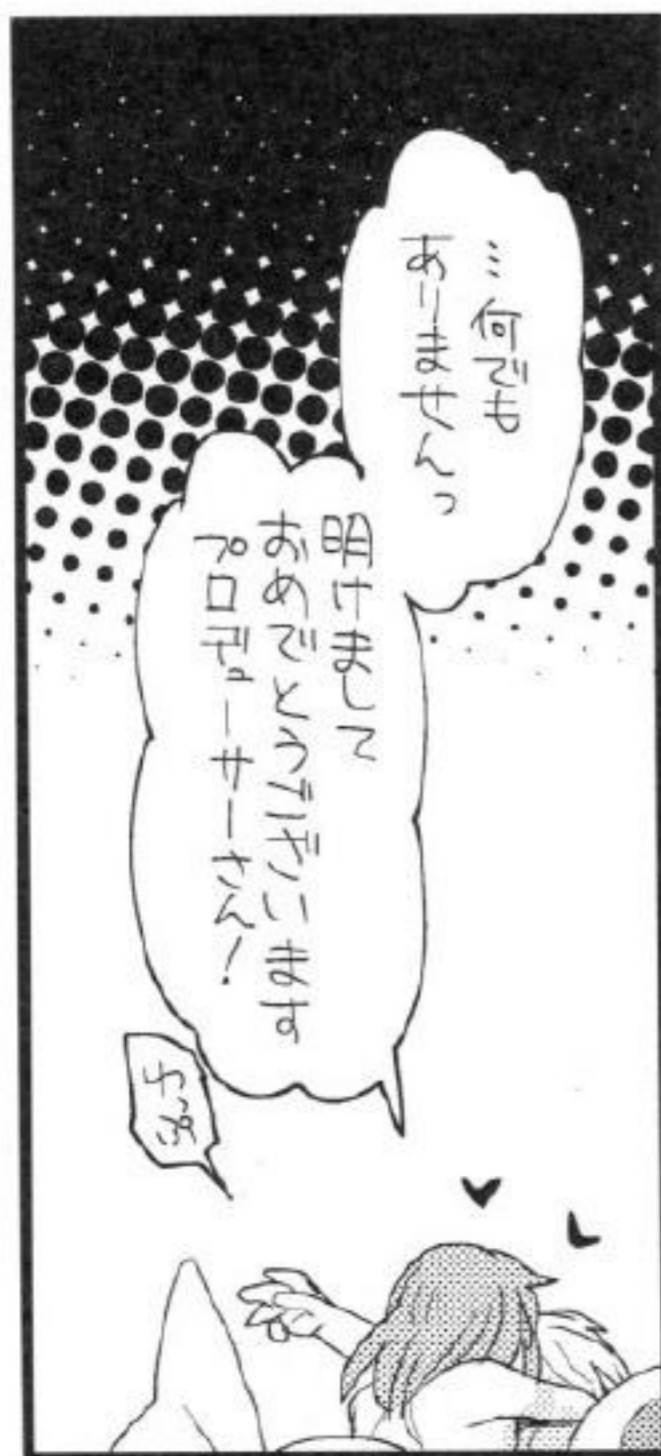 …何でも
ありませんっ
明けまして
おめでとうございます
プロデューサーさん!